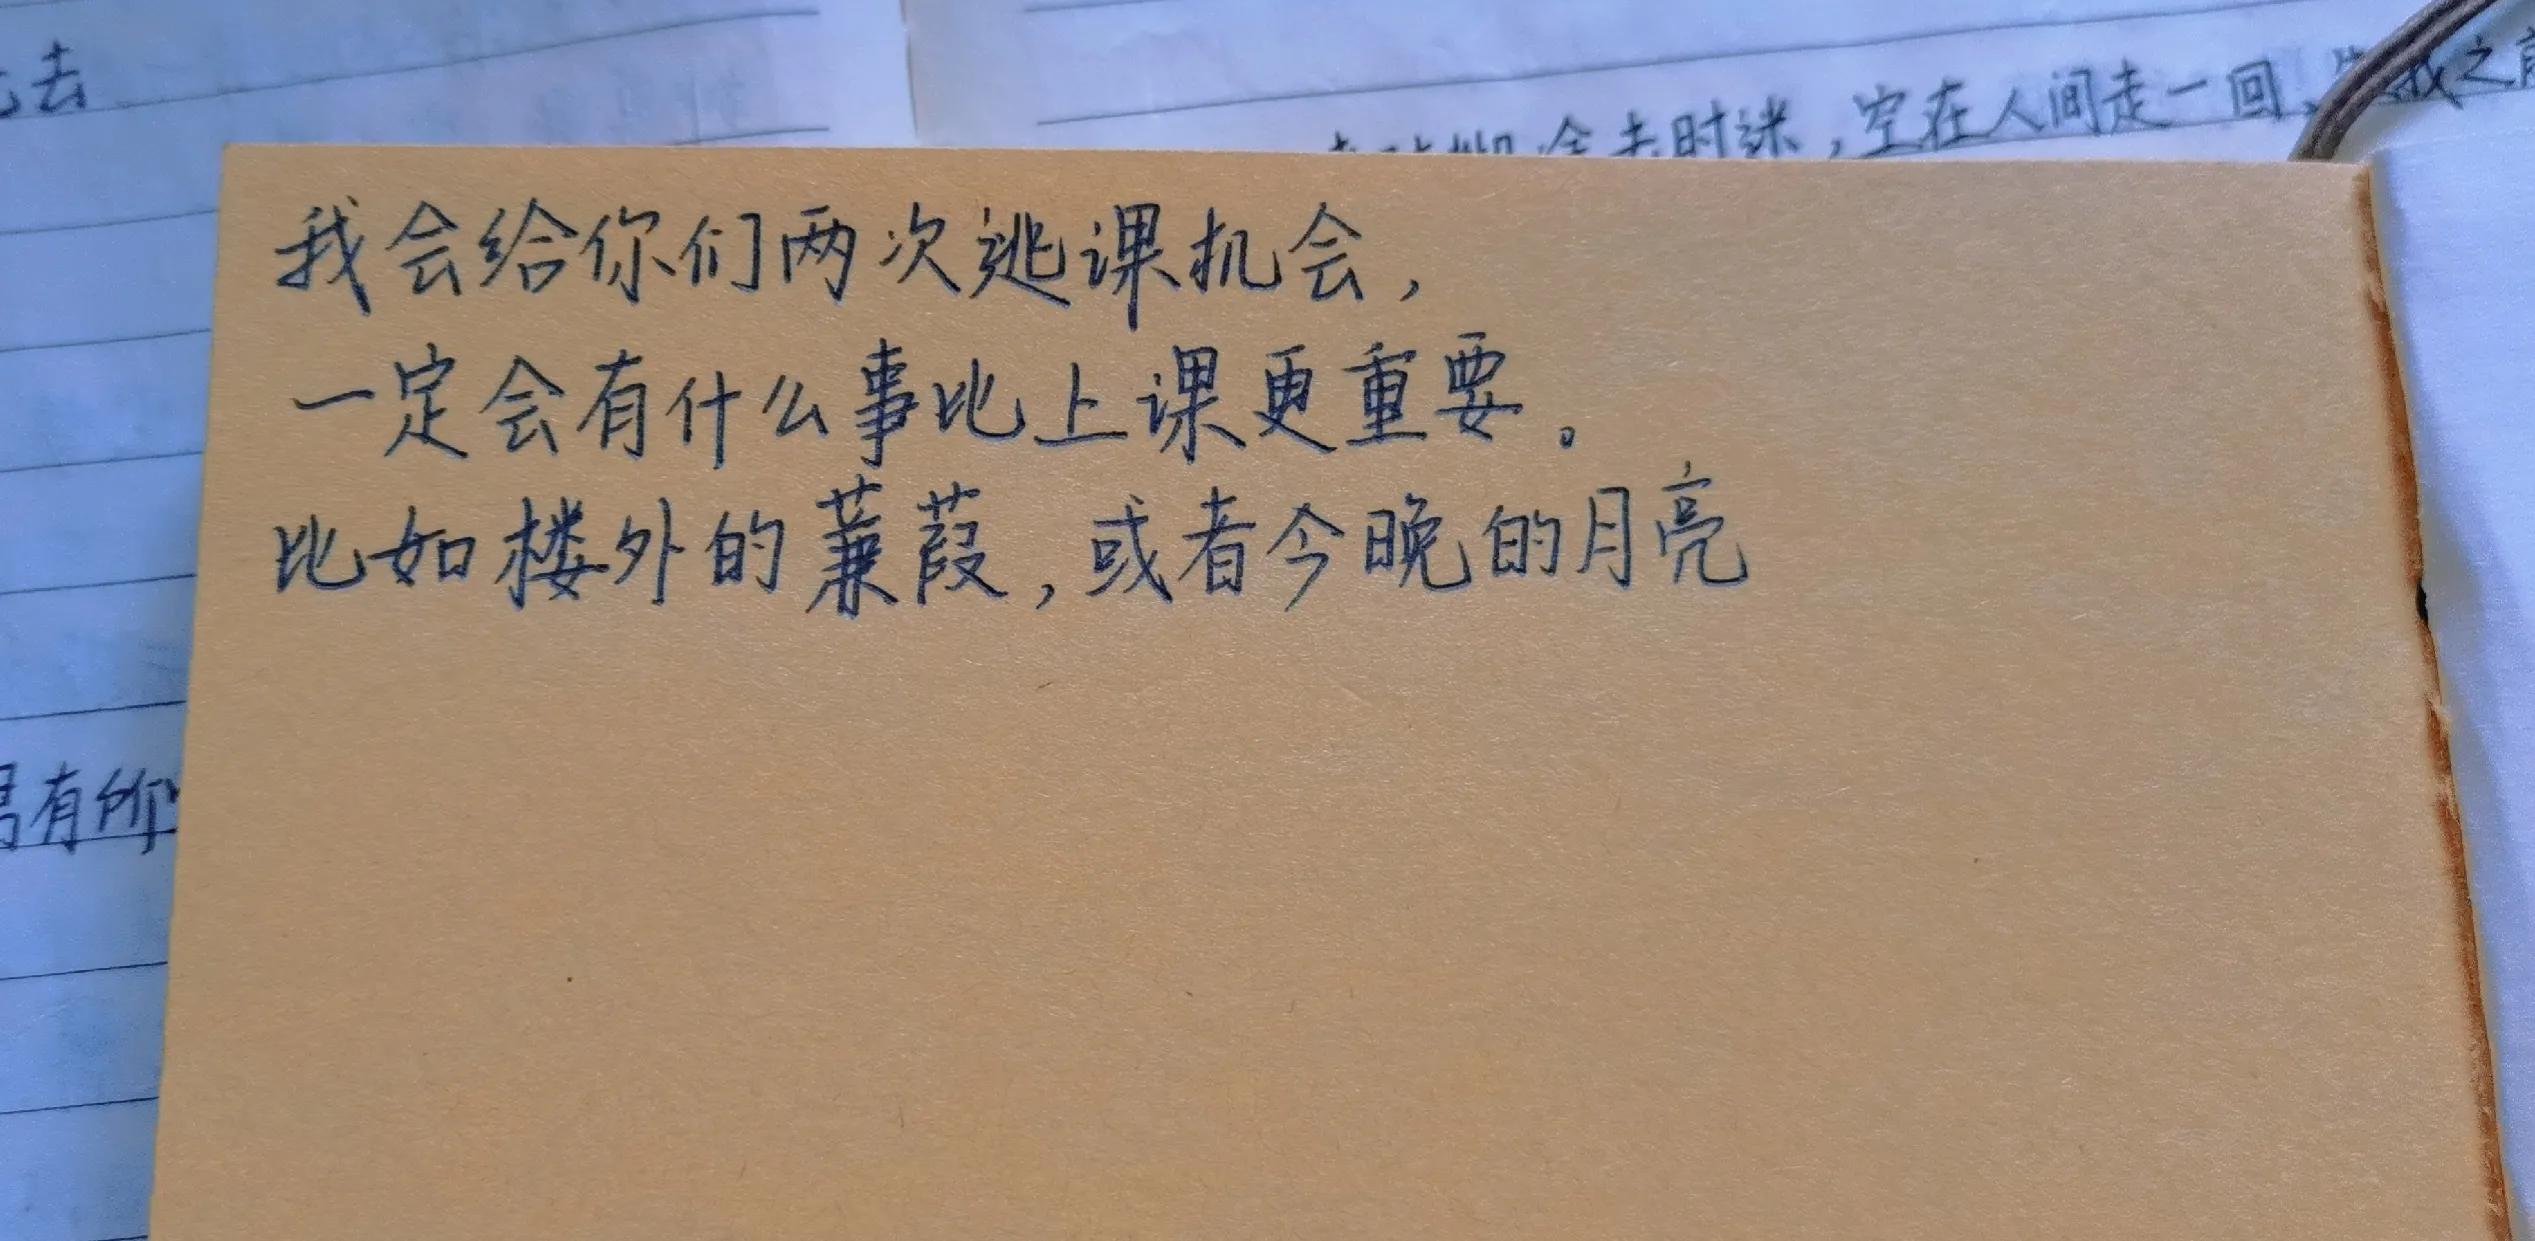 去
时迷，空在人间走一回，
我之前
我会给你们两次逃课机会，
一定会有什么事比上课更重要。
比如楼外的蒹葭，或者今晚的月亮
有所